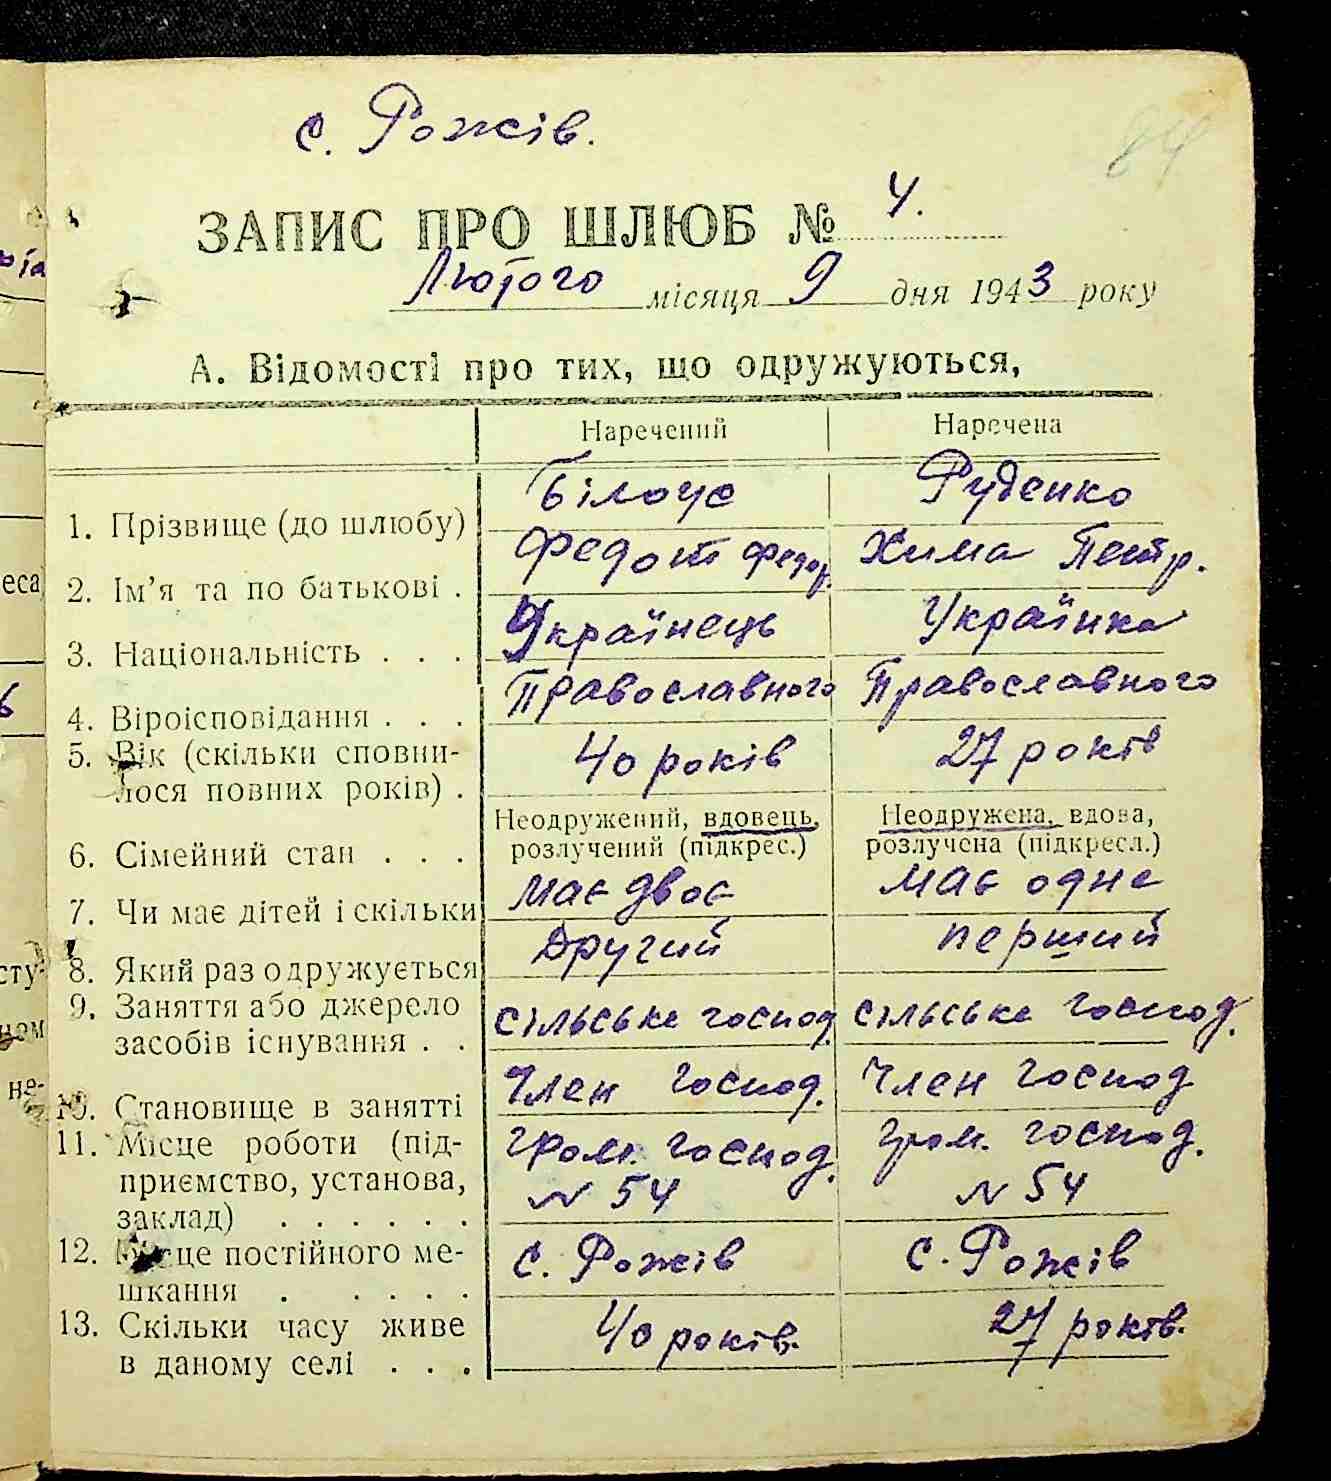 с. Рожів.
84
ЗАПИС ПРО ШЛЮБ № 4.
Лютого місяця 9 дня 1943 року
А. Відомості про тих, що одружуються,
Наречений Наречена
1. Прізвище (до шлюбу) Білоус Руденко
2. Ім'я та по батькові . Федот Федор. Хима Петр.
3. Національність . . . Українець Українка
4. Віроісповідання . . . Православного Православного
5. Вік (скільки сповни-
лося повних років) . 40 років 27 років
Неодружений, вдовець, Неодружена, вдова,
6. Сімейний стан . . . розлучений (підкрес.) розлучена (підкресл.)
7. Чи має дітей і скільки має двоє має одне
8. Який раз одружується Другий перший
9. Заняття або джерело
засобів існування . . сільське господ. сільське господ.
10. Становище в занятті Член господ. Член господ
11. Місце роботи (під- гром. господ. гром. господ.
приємство, установа, № 54 № 54
заклад) . . . . . .
12. Місце постійного ме- с. Рожів с. Рожів
шкання . . . . .
13. Скільки часу живе 40 років. 27 років.
в даному селі . . .
еса
сту-
ном
не-